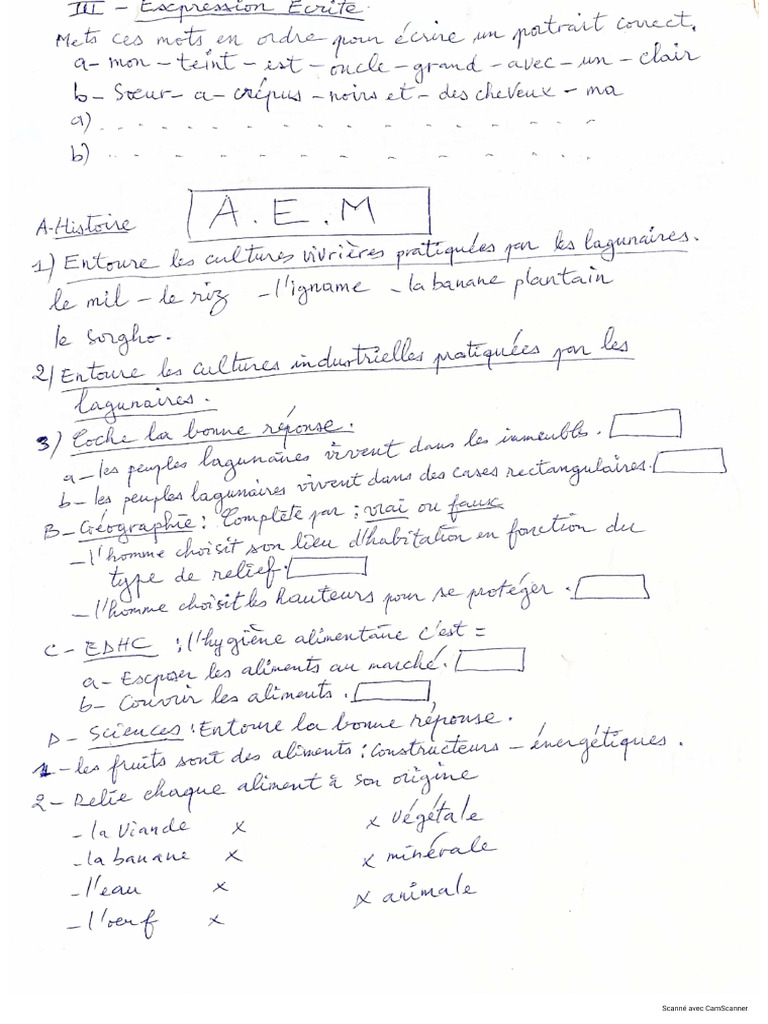 III - Expression Ecrite
Mets ces mots en ordre pour écrire un portrait correct.
a- mon - teint - est - oncle - grand - avec - un - clair
b- Sœur - a - crépus - noirs et - des cheveux - ma
a) . . . . . . . . . . . . . . .
b) . . . . . . . . . . . . . . .
A.E.M
A-Histoire
1) Entoure les cultures vivrières pratiquées par les lagunaires.
le mil - le riz - l'igname - la banane plantain
le sorgho.
2) Entoure les cultures industrielles pratiquées par les
lagunaires.
3) Coche la bonne réponse.
a- les peuples lagunaires vivent dans les immeubles.
b- les peuples lagunaires vivent dans des cases rectangulaires.
B- Géographie : Complète par : vrai ou faux
- l'homme choisit son lieu d'habitation en fonction du
type de relief.
- l'homme choisit les hauteurs pour se protéger.
C- EDHC : l'hygiène alimentaire c'est =
a- Exposer les aliments au marché.
b- Couvrir les aliments.
D- Sciences : Entoure la bonne réponse.
1- les fruits sont des aliments : Constructeurs - énergétiques.
2- Relie chaque aliment à son origine
- la viande x x végétale
- la banane x x minérale
- l'eau x x animale
- l'œuf x
Scanné avec CamScanner